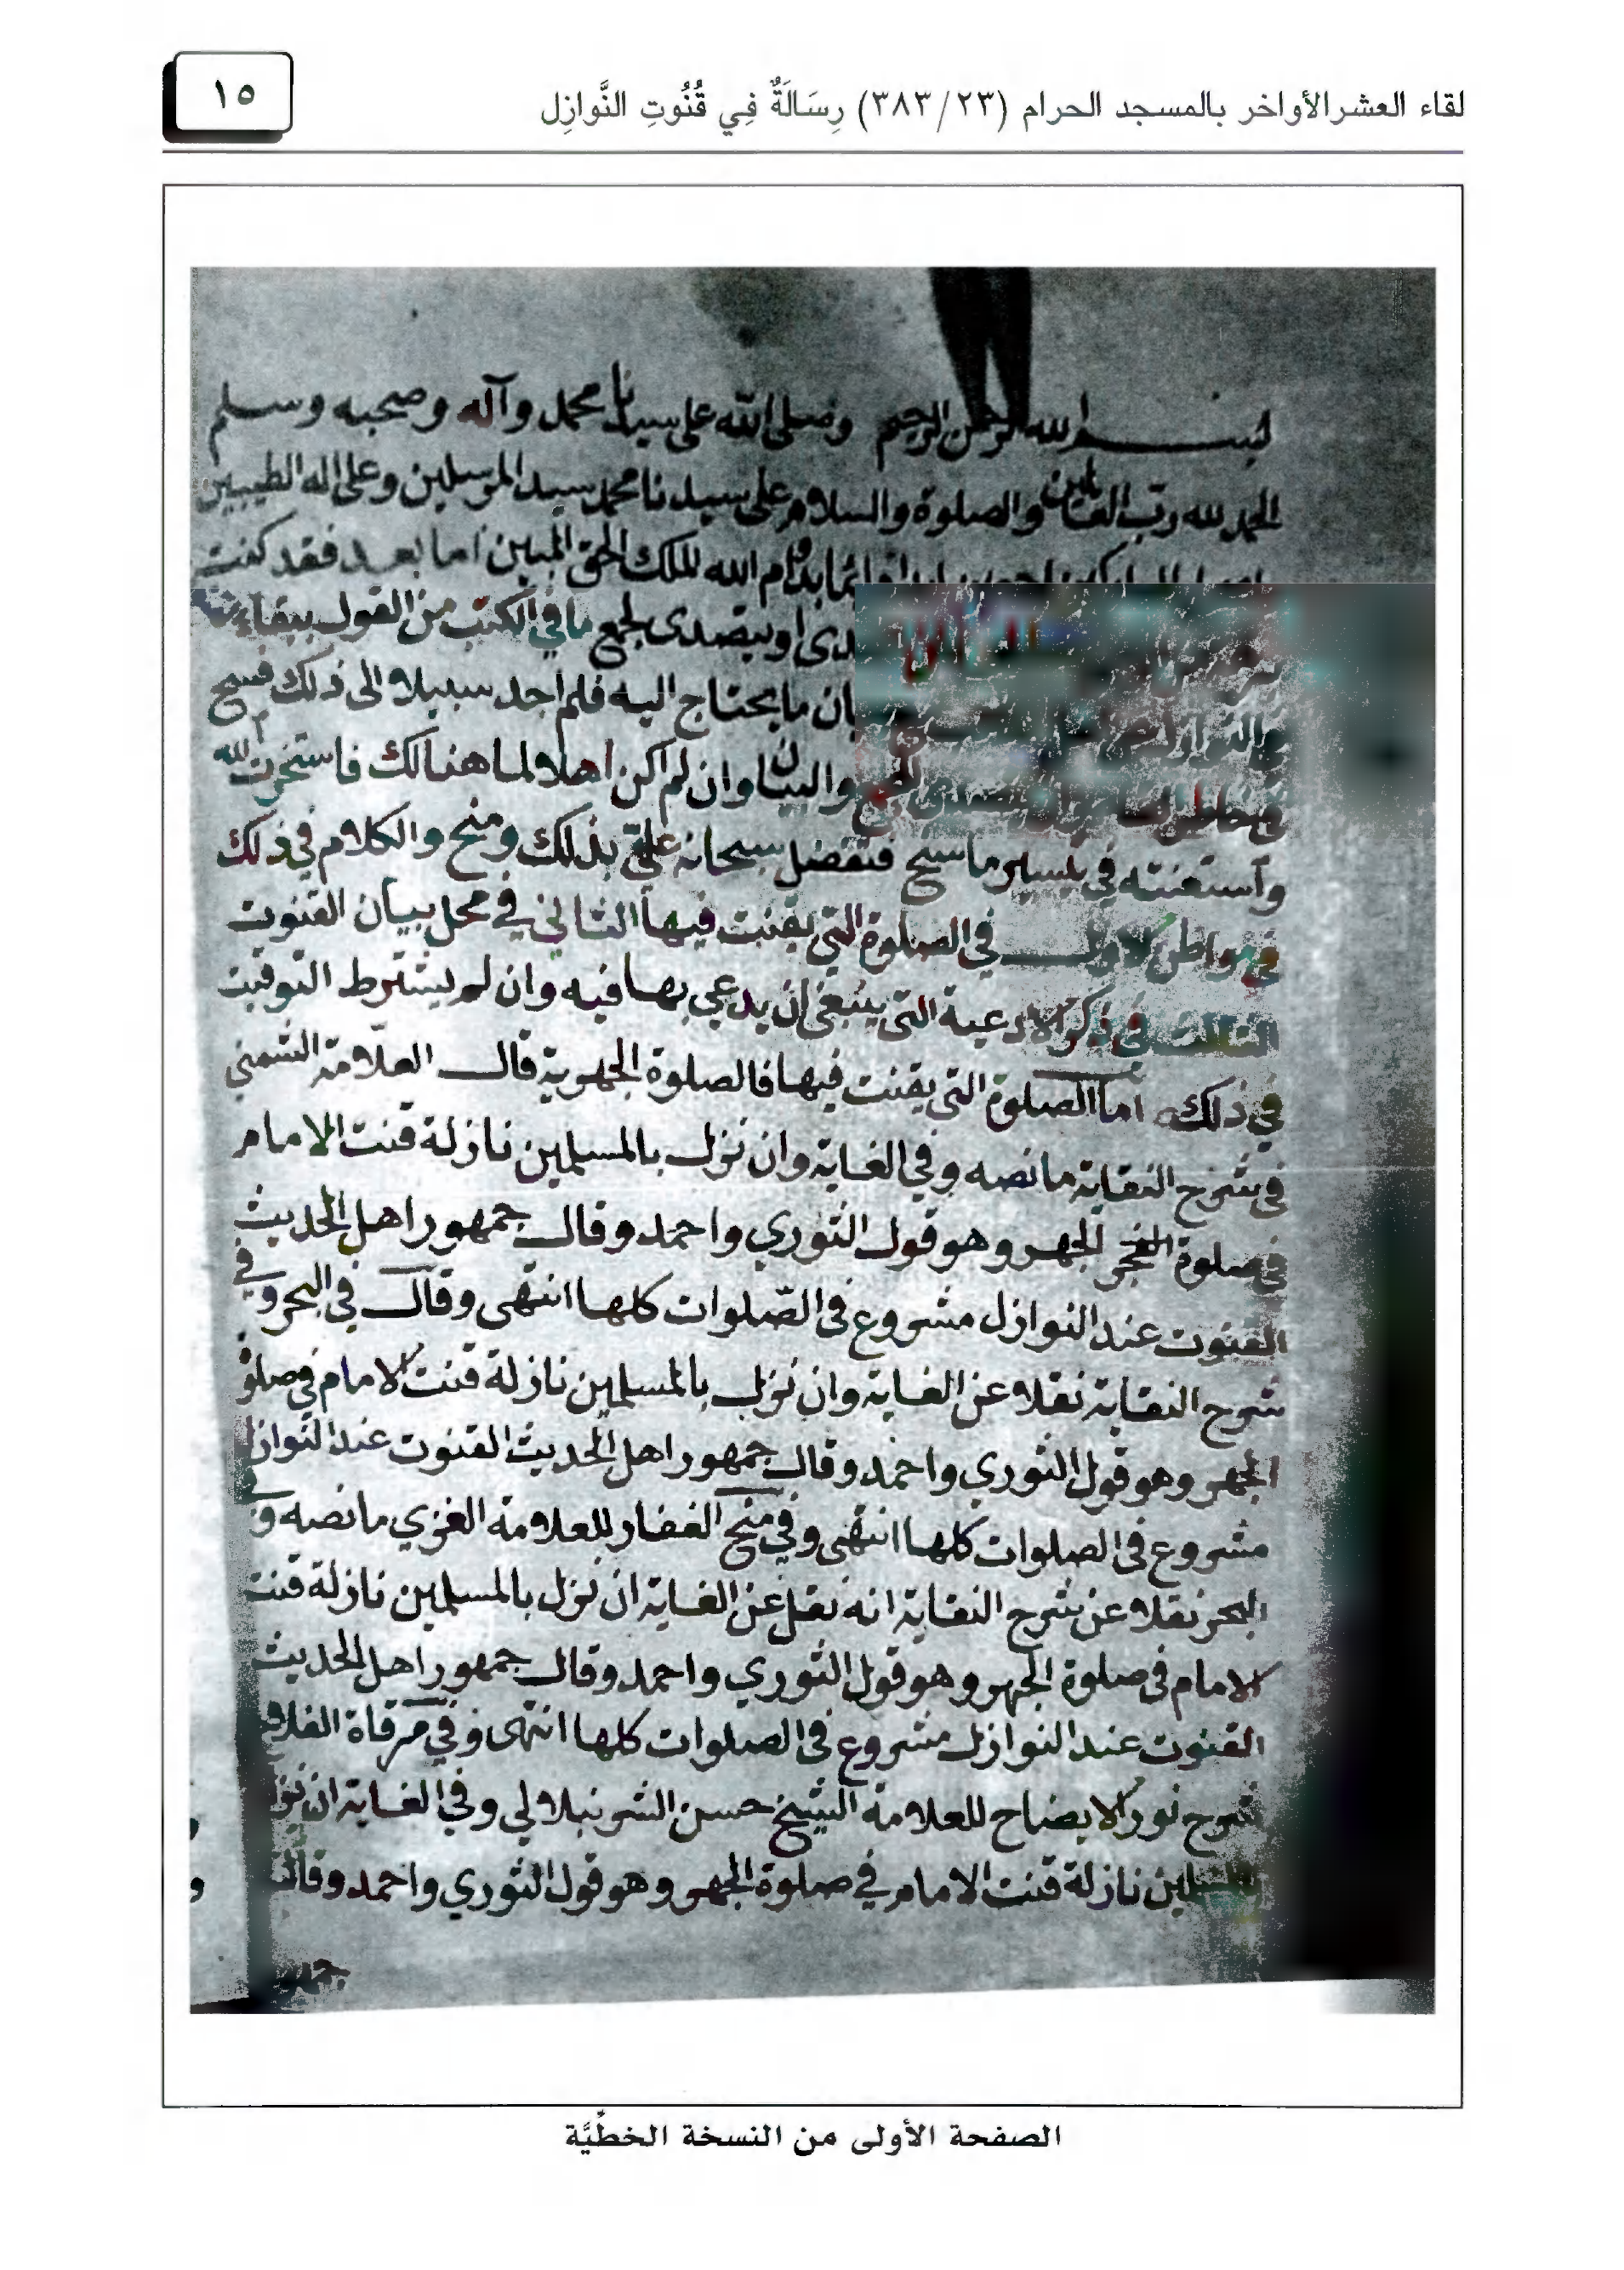 لقاء العشر الأواخر بالمسجد الحرام (٢٣/ ٣٨٣) رِسَالَةٌ فِي قُنُوتِ النَّوازِل
١٥
بسم الله الرحمن الرحيم وصلى الله على سيدنا محمد وآله وصحبه وسلم
الحمد لله رب العالمين والصلوة والسلام على سيدنا محمد سيد المرسلين وعلى اله الطيبين
بدوام الله الملك الحق المبين اما بعد فقد كنت
او يتصدى لجمع ما في الكتب من القول
ما يحتاج اليه فلم اجد سبيلا الى ذلك فسنح
والبيان وان لم اكن اهلا لما هنالك فاستخرت الله
وأستعنته في تيسير ما سنح فتفضل سبحانه علي بذلك ومنح والكلام في ذلك
في مواطن الاول في الصلوة التي يقنت فيها الثاني في محل بيان القنوت
الثالث في ذكر الادعية التي ينبغي ان يدعى بها فيه وان لم يشترط التوقيت
في ذلك اما الصلوة التي يقنت فيها فالصلوة الجهرية قال العلامة الشمني
في شرح النقاية ما نصه وفي الغاية وان نزل بالمسلمين نازلة قنت الامام
في صلوة الفجر الجهر وهو قول الثوري واحمد وقال جمهور اهل الحديث
القنوت عند النوازل مشروع في الصلوات كلها انتهى وقال في البحر وفي
شرح النقاية نقلا عن الغاية وان نزل بالمسلمين نازلة قنت الامام في صلوة
الجهر وهو قول الثوري واحمد وقال جمهور اهل الحديث القنوت عند النوازل
مشروع في الصلوات كلها انتهى وفي منح الغفار للعلامة الغزي ما نصه وفي
البحر نقلا عن شرح النقاية انه نقل عن الغاية ان نزل بالمسلمين نازلة قنت
الامام في صلوة الجهر وهو قول الثوري واحمد وقال جمهور اهل الحديث
القنوت عند النوازل مشروع في الصلوات كلها انتهى وفي مرقاة الفلاح
شرح نور الايضاح للعلامة الشيخ حسن الشرنبلالي وفي الغاية ان نزل
بالمسلمين نازلة قنت الامام في صلوة الجهر وهو قول الثوري واحمد وقال
جمهور
الصفحة الأولى من النسخة الخطِّيَّة